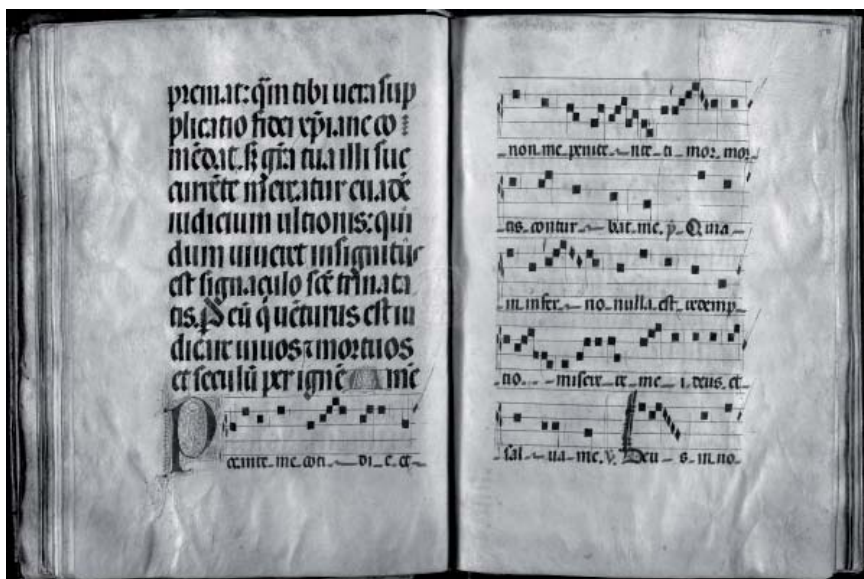 premat: q̄m tibi uera sup
plicatio fidei xp̄iane cō
mēdat. s; gr̄a tua illi suc
currēte mereatur euadē
iudicium ultionis: qui
dum uiueret insignitus
est signaculo scē trinita
tis. P eū q̄ uēturus est iu
dicare uiuos ⁊ mortuos
et seculū per ignē amē
Peccante me coti - di - e - et -
non - me - penite - nte - ti - mor - mor -
tis - contur - bat - me. p̄. Quia -
in - infer - no - nulla - est - redemp -
tio - misere - re - me - i - deus - et -
sal - ua - me. V. Deu - s - in - no -